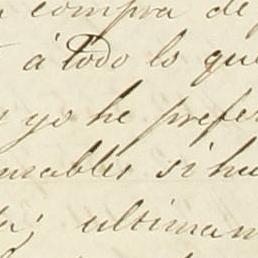 compra de
á todo lo que
yo he prefer
urables si hu
ta; ultiman